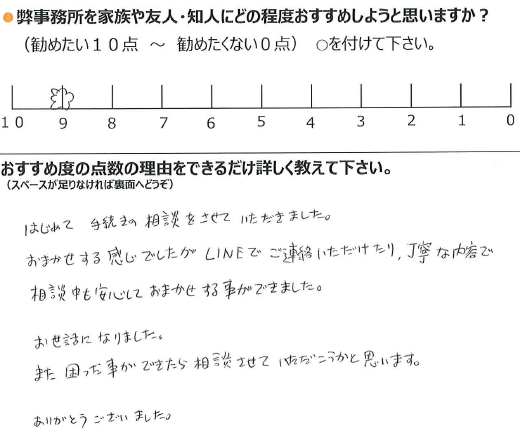 ●弊事務所を家族や友人・知人にどの程度おすすめしようと思いますか？
（勧めたい１０点　～　勧めたくない０点）　○を付けて下さい。
10 9 8 7 6 5 4 3 2 1 0
おすすめ度の点数の理由をできるだけ詳しく教えて下さい。
（スペースが足りなければ裏面へどうぞ）
はじめて 手続きの 相談をさせて いただきました。
おまかせする感じでしたが LINEで ご連絡いただけたり、丁寧な内容で
相談中も安心して おまかせする事ができました。
お世話になりました。
また 困った事ができたら 相談させて いただこうかと思います。
ありがとうございました。